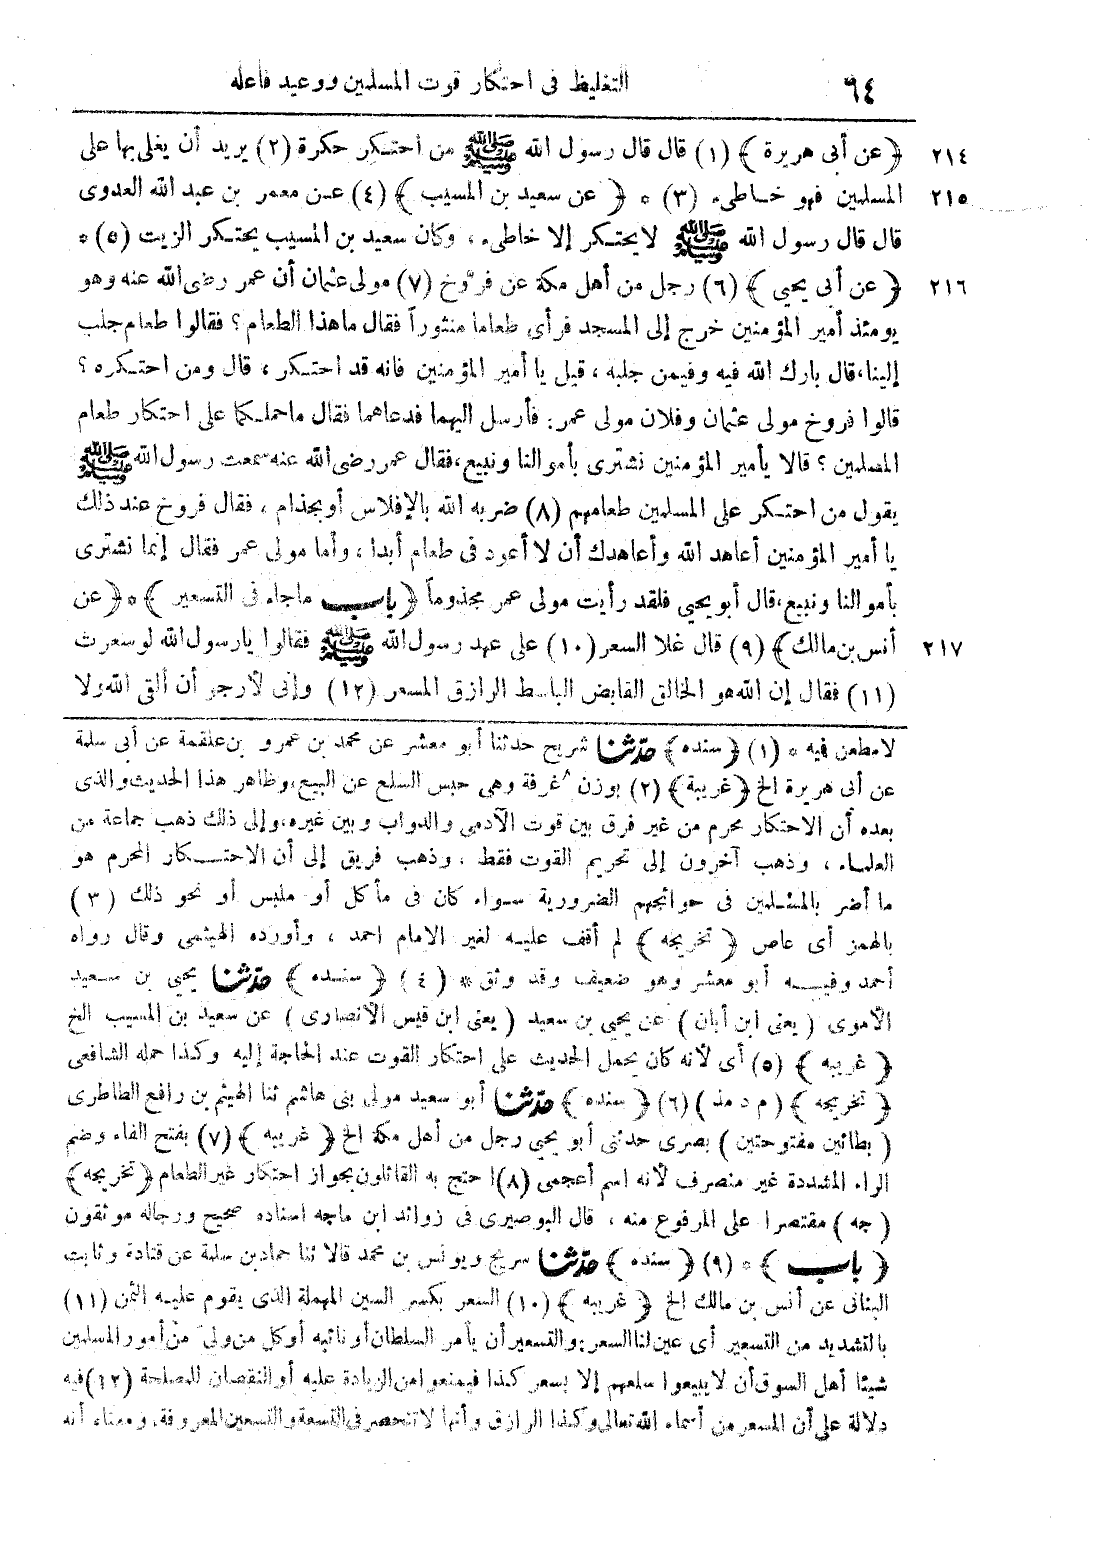 ٦٤ التغليظ فى احتكار قوت المسلمين ووعيد فاعله
٢١٤ ﴿ عن أبى هريرة ﴾ (١) قال قال رسول الله ﷺ من احتكر حكرة (٢) يريد أن يغلى بها على
٢١٥ المسلمين فهو خاطىء (٣) * ﴿ عن سعيد بن المسيب ﴾ (٤) عن معمر بن عبد الله العدوى
قال قال رسول الله ﷺ لا يحتكر إلا خاطىء ، وكان سعيد بن المسيب يحتكر الزيت (٥) *
٢١٦ ﴿ عن أبى يحيى ﴾ (٦) رجل من أهل مكة عن فروخ (٧) مولى عثمان أن عمر رضى الله عنه وهو
يومئذ أمير المؤمنين خرج إلى المسجد فرأى طعاما منثوراً فقال ما هذا الطعام ؟ فقالوا طعام جلب
إلينا،قال بارك الله فيه وفيمن جلبه ، قيل يا أمير المؤمنين فانه قد احتكر ، قال ومن احتكره ؟
قالوا فروخ مولى عثمان وفلان مولى عمر: فأرسل اليهما فدعاهما فقال ما حملكما على احتكار طعام
المسلمين ؟ قالا يأمير المؤمنين نشترى بأموالنا ونبيع،فقال عمر رضى الله عنه سمعت رسول الله ﷺ
يقول من احتكر على المسلمين طعامهم (٨) ضربه الله بالإفلاس أو بجذام ، فقال فروخ عند ذلك
يا أمير المؤمنين أعاهد الله وأعاهدك أن لا أعود فى طعام أبدا ، وأما مولى عمر فقال إنما نشترى
بأموالنا ونبيع،قال أبو يحيى فلقد رأيت مولى عمر مجذوماً ﴿ باب ماجاء فى التسعير ﴾ * ﴿ عن
٢١٧ أنس بن مالك ﴾ (٩) قال غلا السعر (١٠) على عهد رسول الله ﷺ فقالوا يا رسول الله لو سعرت
(١١) فقال إن الله هو الخالق القابض الباسط الرازق المسعر (١٢) وإنى لأرجو أن ألقى الله ولا
لا مطعن فيه * (١) ﴿ سنده ﴾ حدّثنا شريح حدثنا أبو معشر عن محمد بن عمرو بن علقمة عن أبى سلمة
عن أبى هريرة الخ ﴿ غريبة ﴾ (٢) بوزن غرفة وهى حبس السلع عن البيع،وظاهر هذا الحديث والذى
بعده أن الاحتكار محرم من غير فرق بين قوت الآدمى والدواب وبين غيره،وإلى ذلك ذهب جماعة من
العلماء ، وذهب آخرون إلى تحريم القوت فقط ، وذهب فريق إلى أن الاحتكار المحرم هو
ما أضر بالمسلمين فى حوائجهم الضرورية سواء كان فى مأكل أو ملبس أو نحو ذلك (٣)
بالهمز أى عاص ﴿ تخريجه ﴾ لم أقف عليه لغير الامام احمد ، وأورده الهيثمى وقال رواه
أحمد وفيه أبو معشر وهو ضعيف وقد وثق * (٤) ﴿ سنده ﴾ حدّثنا يحيى بن سعيد
الأموى ( يعنى ابن أبان ) عن يحيى بن سعيد ( يعنى ابن قيس الأنصارى ) عن سعيد بن المسيب الخ
﴿ غريبه ﴾ (٥) أى لأنه كان يحمل الحديث على احتكار القوت عند الحاجة إليه وكذا حمله الشافعى
﴿ تخريجه ﴾ ( م د مذ ) (٦) ﴿ سنده ﴾ حدّثنا أبو سعيد مولى بنى هاشم ثنا الهيثم بن رافع الطاطرى
( بطائين مفتوحتين ) بصرى حدثنى أبو يحيى رجل من أهل مكة الخ ﴿ غريبه ﴾ (٧) بفتح الفاء وضم
الراء المشددة غير منصرف لأنه اسم أعجمى (٨) احتج به القائلون بجواز احتكار غير الطعام ﴿ تخريجه ﴾
( جه ) مقتصرا على المرفوع منه ، قال البوصيرى فى زوائد ابن ماجه اسناده صحيح ورجاله موثقون
﴿ باب ﴾ * (٩) ﴿ سنده ﴾ حدّثنا سريج ويونس بن محمد قالا ثنا حماد بن سلمة عن قتادة وثابت
البنانى عن أنس بن مالك الخ ﴿ غريبه ﴾ (١٠) السعر بكسر السين المهملة الذى يقوم عليه الثمن (١١)
بالتشديد من التسعير أى عين لنا السعر:والتسعير أن يأمر السلطان أو نائبه أو كل من ولى من أمور المسلمين
شيئا أهل السوق أن لا يبيعوا سلعهم إلا بسعر كذا فيمنعوا من الزيادة عليه أو النقصان للمصلحة (١٢) فيه
دلالة على أن المسعر من أسماء الله تعالى وكذا الرازق وأنها لا تنحصر فى التسعة والتسعين المعروفة، ومعناه أنه